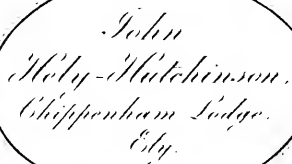 John
Hely-Hutchinson.
Chippenham Lodge.
Ely.